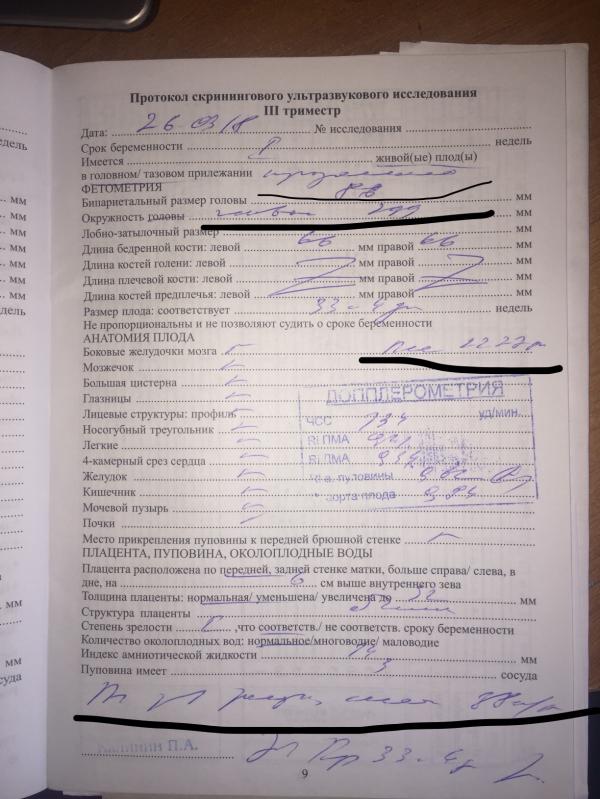 Протокол скринингового ультразвукового исследования
III триместр
Дата: 26 03/8 № исследования
Срок беременности I недель
Имеется живой(ые) плод(ы)
в головном/ тазовом прилежании продольное
ФЕТОМЕТРИЯ
Бипариетальный размер головы 88 мм
Окружность головы живот мм
Лобно-затылочный размер мм
Длина бедренной кости: левой 66 мм правой 66 мм
Длина костей голени: левой мм правой мм
Длина плечевой кости: левой мм правой мм
Длина костей предплечья: левой мм правой мм
Размер плода: соответствует 33-4 дн недель
Не пропорциональны и не позволяют судить о сроке беременности
АНАТОМИЯ ПЛОДА
Боковые желудочки мозга
Мозжечок
Большая цистерна
Глазницы
Лицевые структуры: профиль
Носогубный треугольник
Легкие
4-камерный срез сердца
Желудок
Кишечник
Мочевой пузырь
Почки
ДОППЛЕРОМЕТРИЯ
ЧСС 134 уд/мин.
Ri ПМА
Ri ЛМА
а. пуповины
аорта плода
Место прикрепления пуповины к передней брюшной стенке
ПЛАЦЕНТА, ПУПОВИНА, ОКОЛОПЛОДНЫЕ ВОДЫ
Плацента расположена по передней, задней стенке матки, больше справа/ слева, в
дне, на 6 см выше внутреннего зева
Толщина плаценты: нормальная/ уменьшена/ увеличена до 32 мм
Структура плаценты
Степень зрелости I ,что соответств./ не соответств. сроку беременности
Количество околоплодных вод: нормальное/многоводие/ маловодие
Индекс амниотической жидкости 14 мм
Пуповина имеет 3 сосуда
КАЛИНИН П.А.
33-4
9